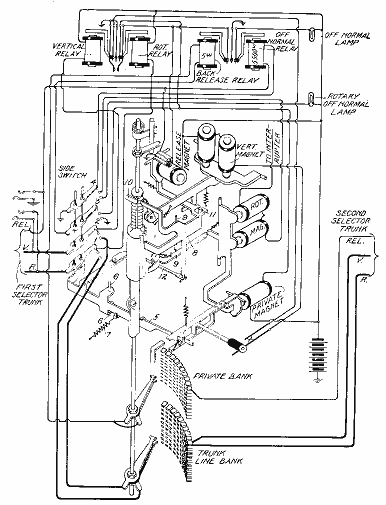 VERTICAL
RELAY
ROT.
RELAY
SW
BACK
RELEASE RELAY
500W
OFF
NORMAL
RELAY
OFF NORMAL
LAMP
ROTARY
OFF NORMAL
LAMP
RELEASE
MAGNET
VERT
MAGNET
SIDE
SWITCH
10
9
11
ROT.
MAG.
8
9
12
REL.
V.
R.
FIRST
SELECTOR
TRUNK
SECOND
SELECTOR
TRUNK
REL.
V.
R.
6
6
7
5
PRIVATE
MAGNET
PRIVATE BANK
TRUNK
LINE BANK